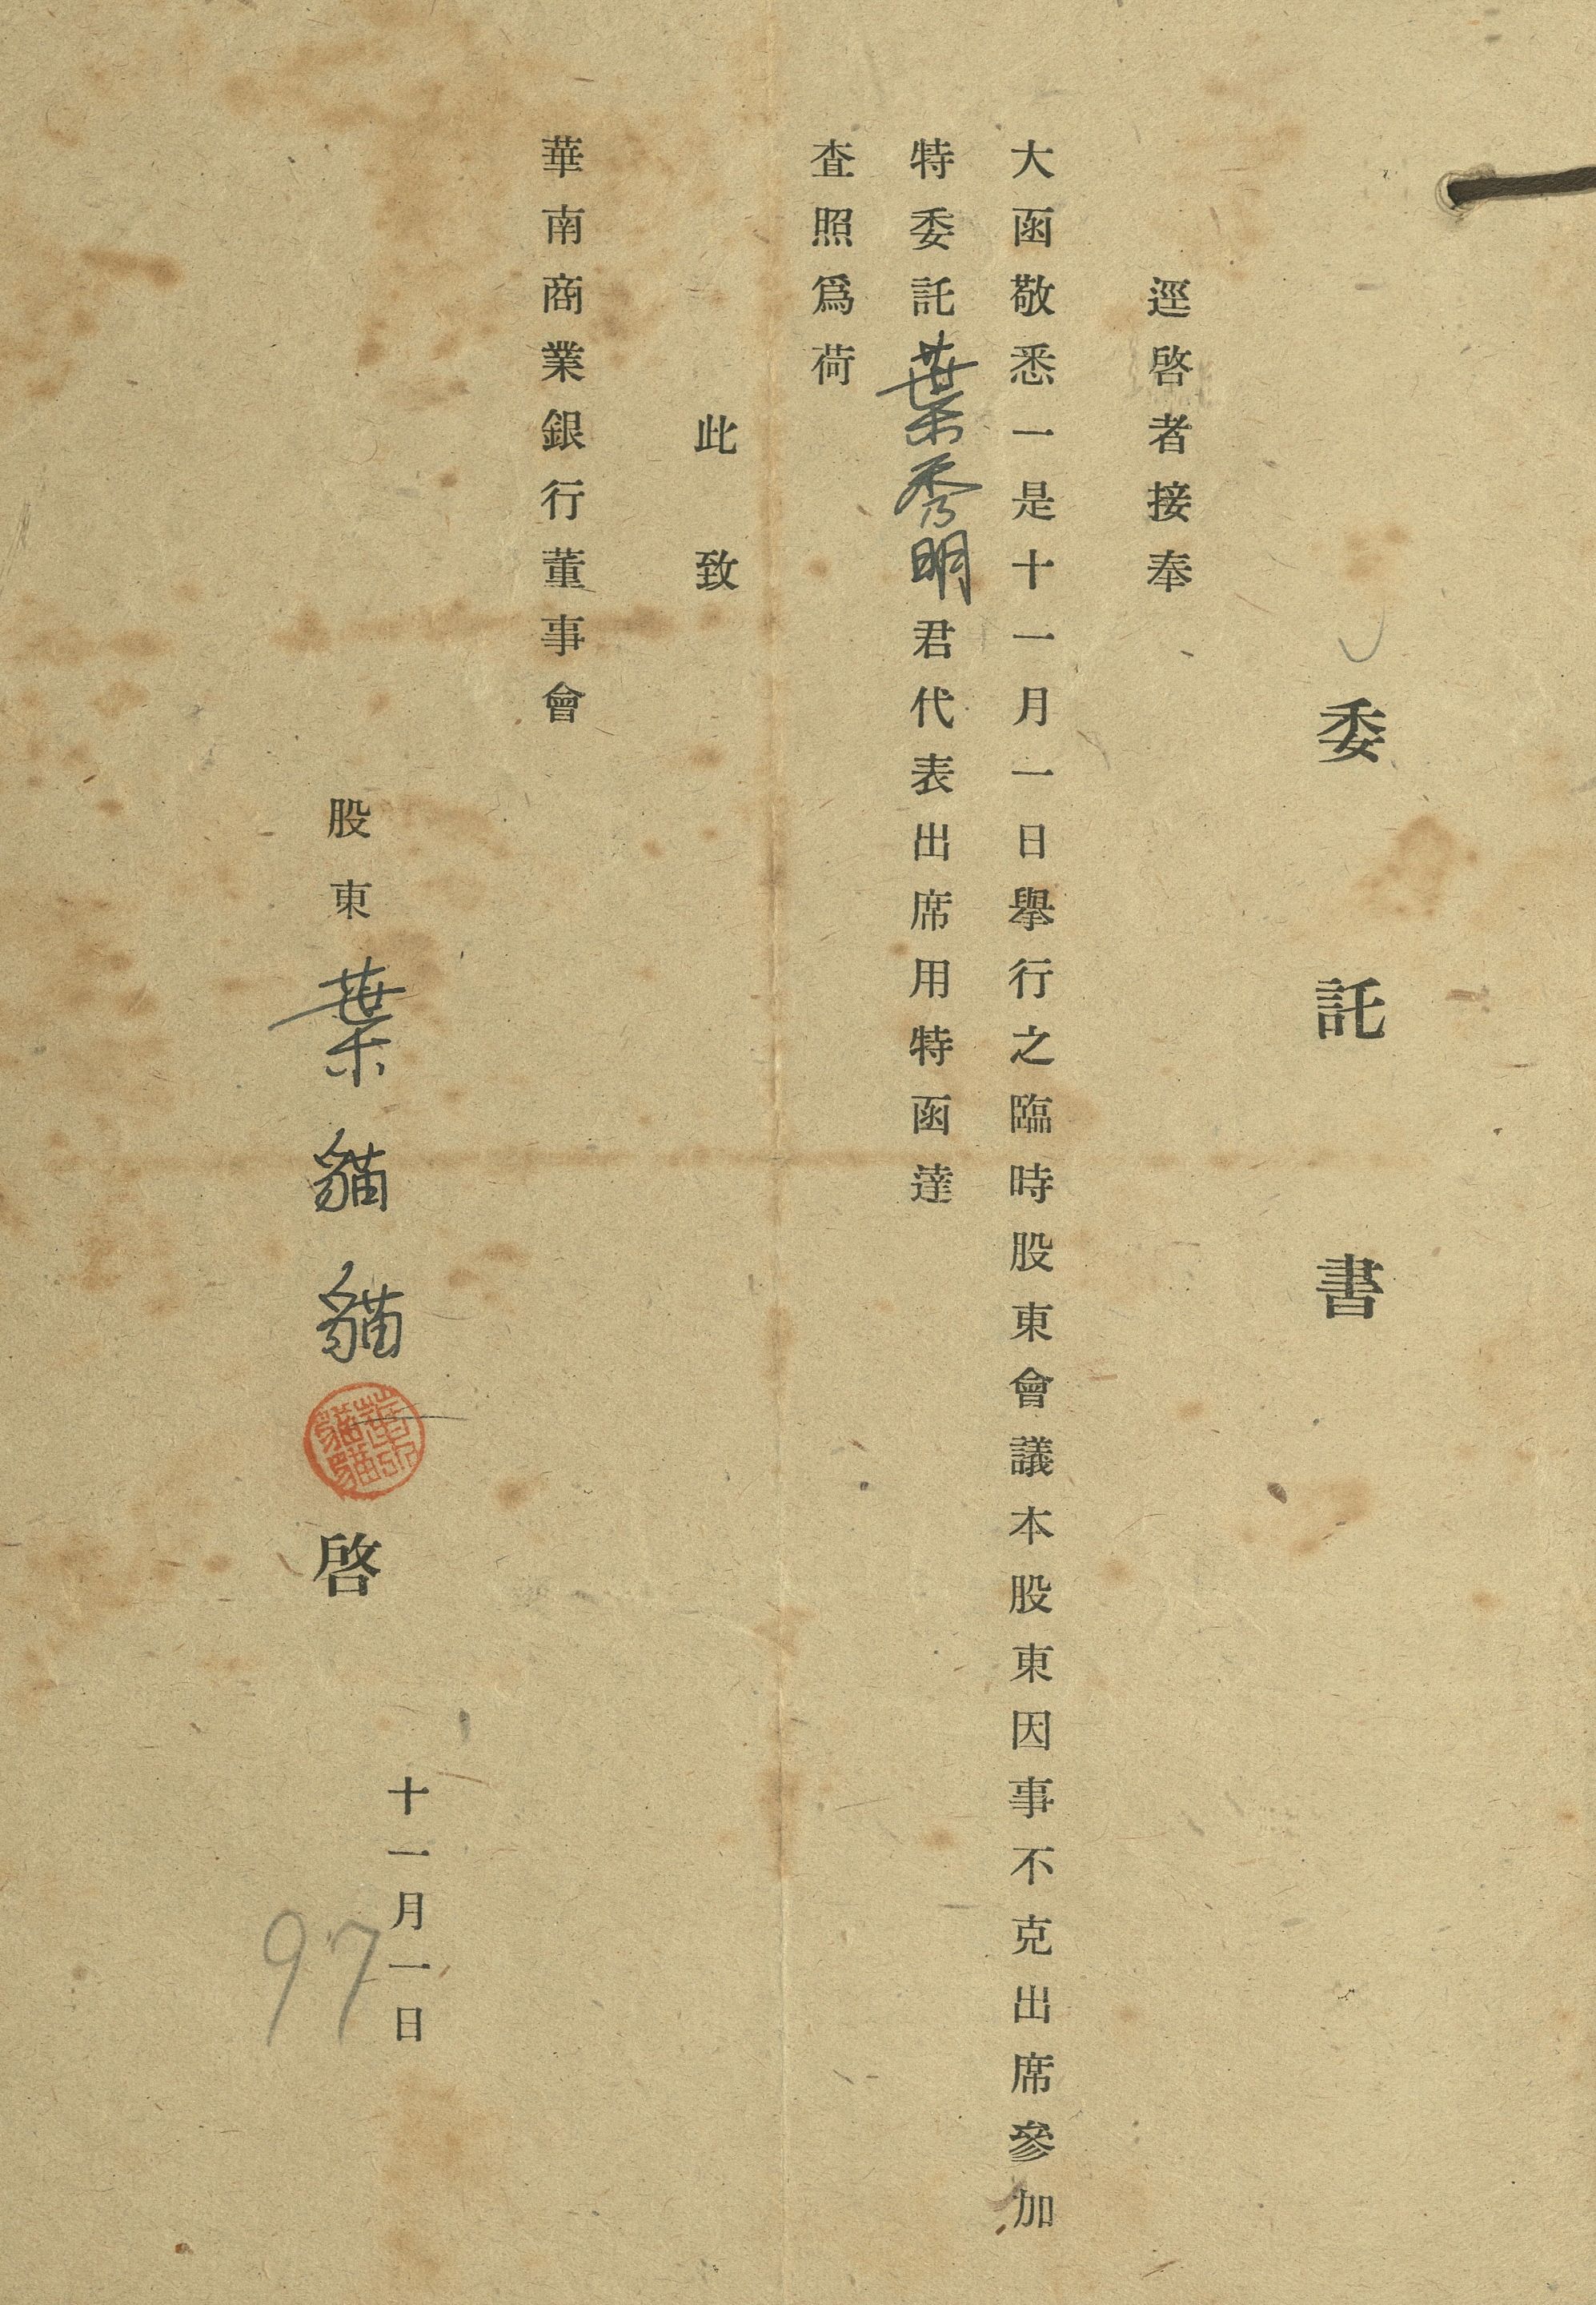 委託書
逕啓者接奉
大函敬悉一是十一月一日舉行之臨時股東會議本股東因事不克出席參加
特委託葉秀明君代表出席用特函達
査照爲荷
此致
華南商業銀行董事會
十一月一日
股東葉貓貓啓
97